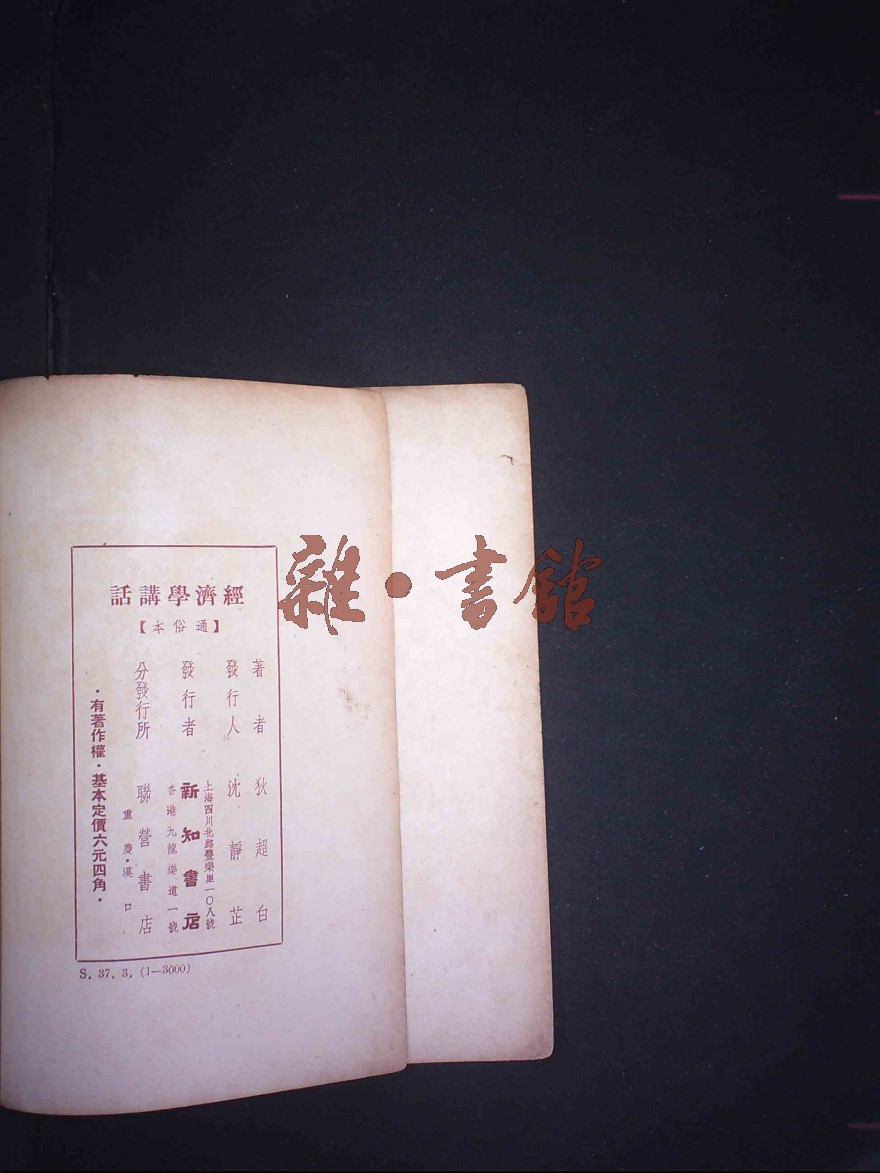 話講學濟經
【本俗通】
著者 狄超白
發行人 沈靜芷
上海四川北路豐樂里一〇八號
發行者 新知書店
香港九龍樂道一號
分發行所 聯營書店
重慶·漢口
·有著作權·基本定價六元四角·
S. 37. 3. (1—3000)
雜·書館